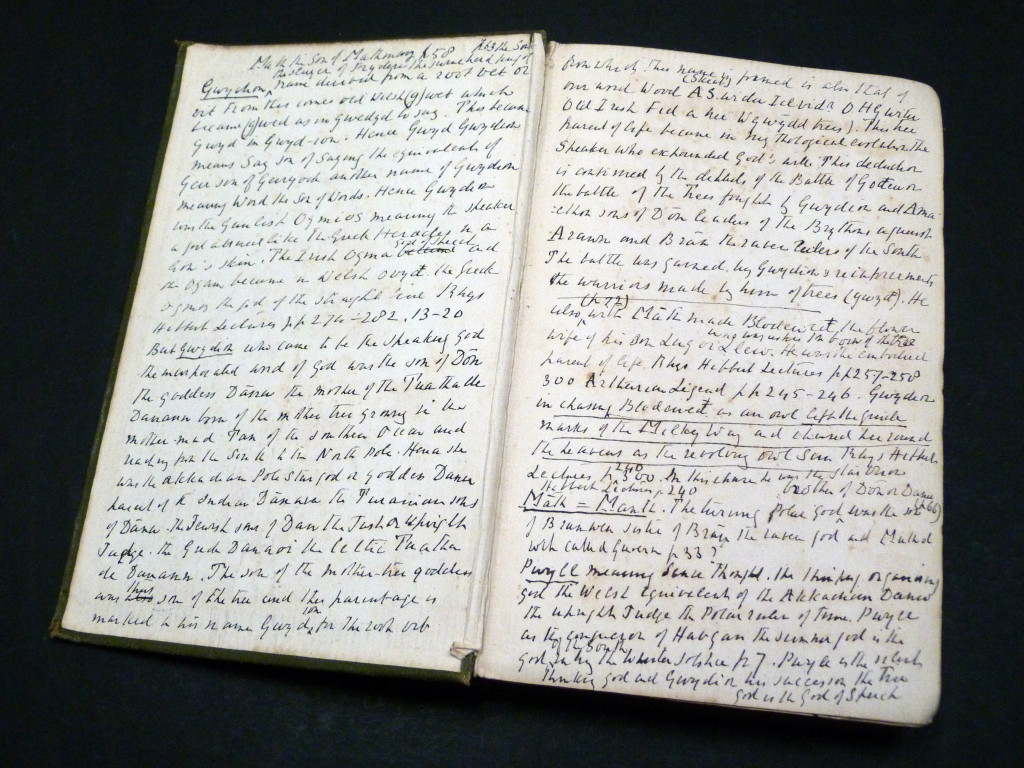 Math the Son of Mathonwy p 58
the slayer of Pryderi the swineherd king of
Gwydion, name derived from a root vet or
vit From this comes old Welsh (g)wet which
became (g)wed as in gwedyd to say. This became
Gwyd in Gwyd-ion. Hence Gwyd Gwydion
means Say son of Saying the equivalent of
Geir son of Geiryoth another name of Gwydion
meaning Word the Son of Words. Hence Gwydion
was the Gaulish Ogmios meaning the speaker
a god armed like the Greek Heracles in a
lion's skin. The Irish Ogma God of Speech and
the Ogam became in Welsh Ovyd the Greek
ogmos the god of the straight line Rhys
Hibbert Lectures pp 276-282, 13-20
But Gwydion who came to be the speaking god
the incarnated word of God was the son of Dôn
the goddess Danu the mother of the Tuatha de
Danann born of the mother tree growing in the
mother-mud Tan of the Southern Ocean and
reaching from the South to the North Pole. Hence she
was the Akkadian Pole Star god or goddess Danu
parent of the Indian Dānava the Turanian sons
of Danu. The Jewish sons of Dan the Just or Upright
Judge. the Greek Danaoi the Celtic Tuatha
de Danann. The son of the mother-tree goddess
was thus son of the tree and this parentage is
marked in his name Gwydion for the root vet
from which this name is formed is also that of
(Skeat)
our word Wood A.S. widu Icel vidr OHG witu
Old Irish Fid a tree W gwydd trees). This tree
parent of life became in mythological evolution the
Speaker who expounded God's will. This deduction
is confirmed by the details of the Battle of Godeu or
the battle of the Trees fought by Gwydion and Ama-
ethon sons of Dôn leaders of the Brythons against
Arawn and Brân the raven rulers of the South
The battle was gained by Gwydion's reinforcements
the warriors made by him of trees (gwyd). He
(p 73)
also, with Mâth made Blodeued, the flower
wife of his son Lug or Llew. He was the embodied
parent of life Rhys Hibbert Lectures pp 257-258
300 Arthurian Legend pp 245-246. Gwydion
in chasing Blodeued as an owl left the guide
marks of the Milky Way and chased her round
the heavens as the revolving owl Sun Rhys Hibbert
Lectures p 240 300. In this chase he was the
Hibbert Lectures p 240 brother of Dôn or Danu
Mâth = Manth. The turning Polar god was the son
of Branwen sister of Brân the raven god and Math
was called Gwern p 33?
Pwyll meaning Sense Thought. the thinking organising
god the Welsh equivalent of the Akkadian Danu
the upright Judge the Polar ruler of time. Pwyll
as the conqueror of Havgan the summer god is the
of the South
god ruling the Winter Solstice p 7. Pwyll is the
thinking god and Gwydion his successor the tree
god is the God of Speech